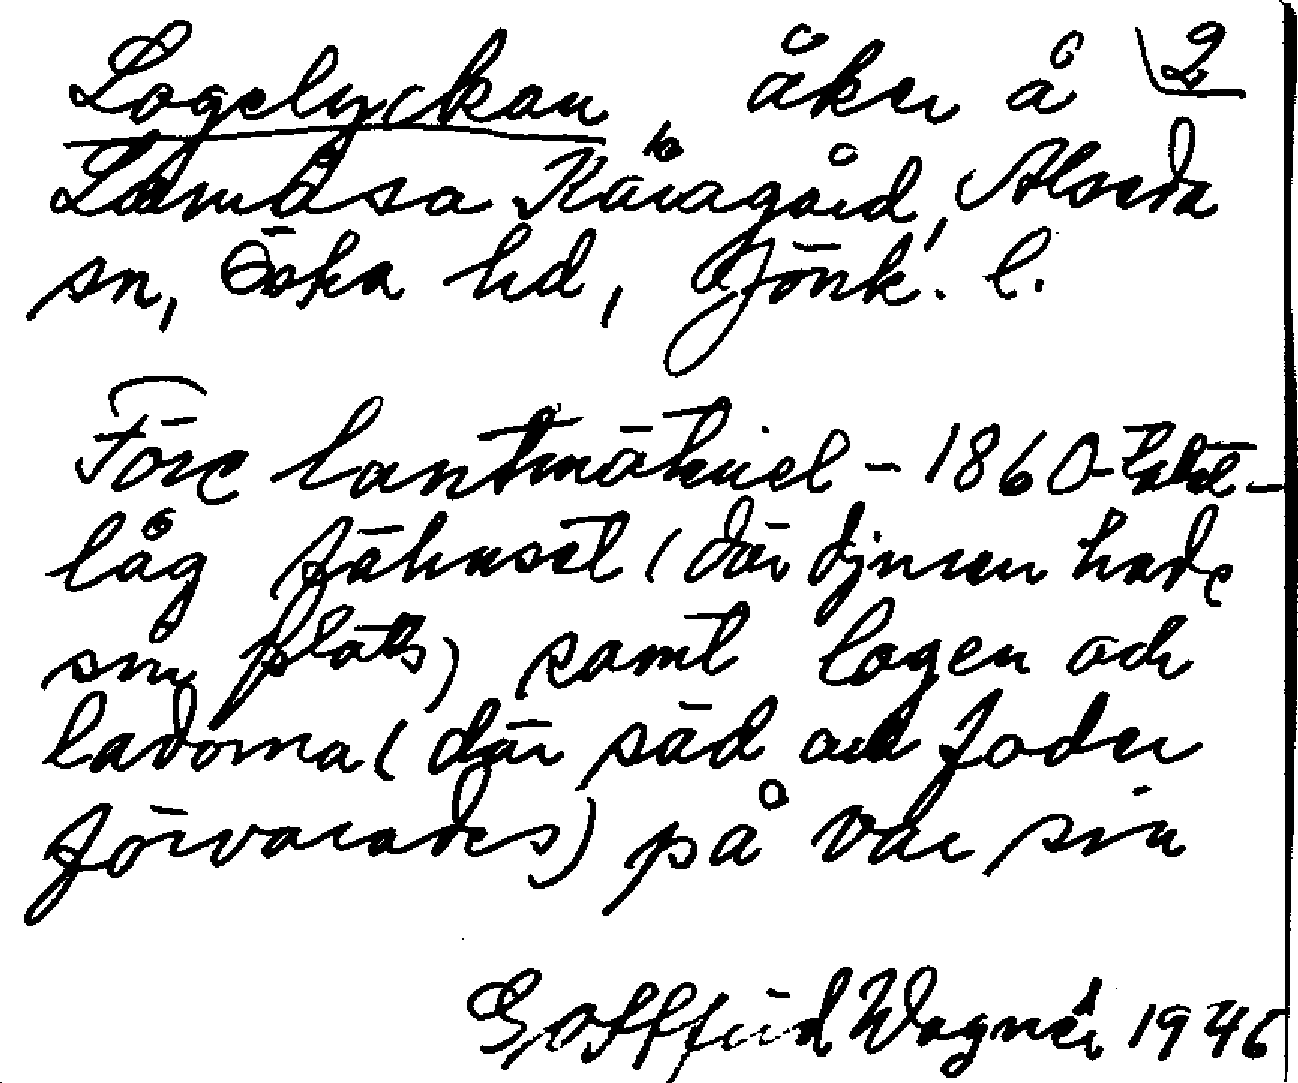 Logelyckan, åker å 2
Lämåsa Käragård, Alseda
sn, Östra hd, Jönk. l.
Före lantmäteriet – 1860-talet –
låg fähuset (där djuren hade
sin plats) samt logen och
ladorna (där säd och foder
förvarades) på var sin
Gottfrid Wagnér 1946